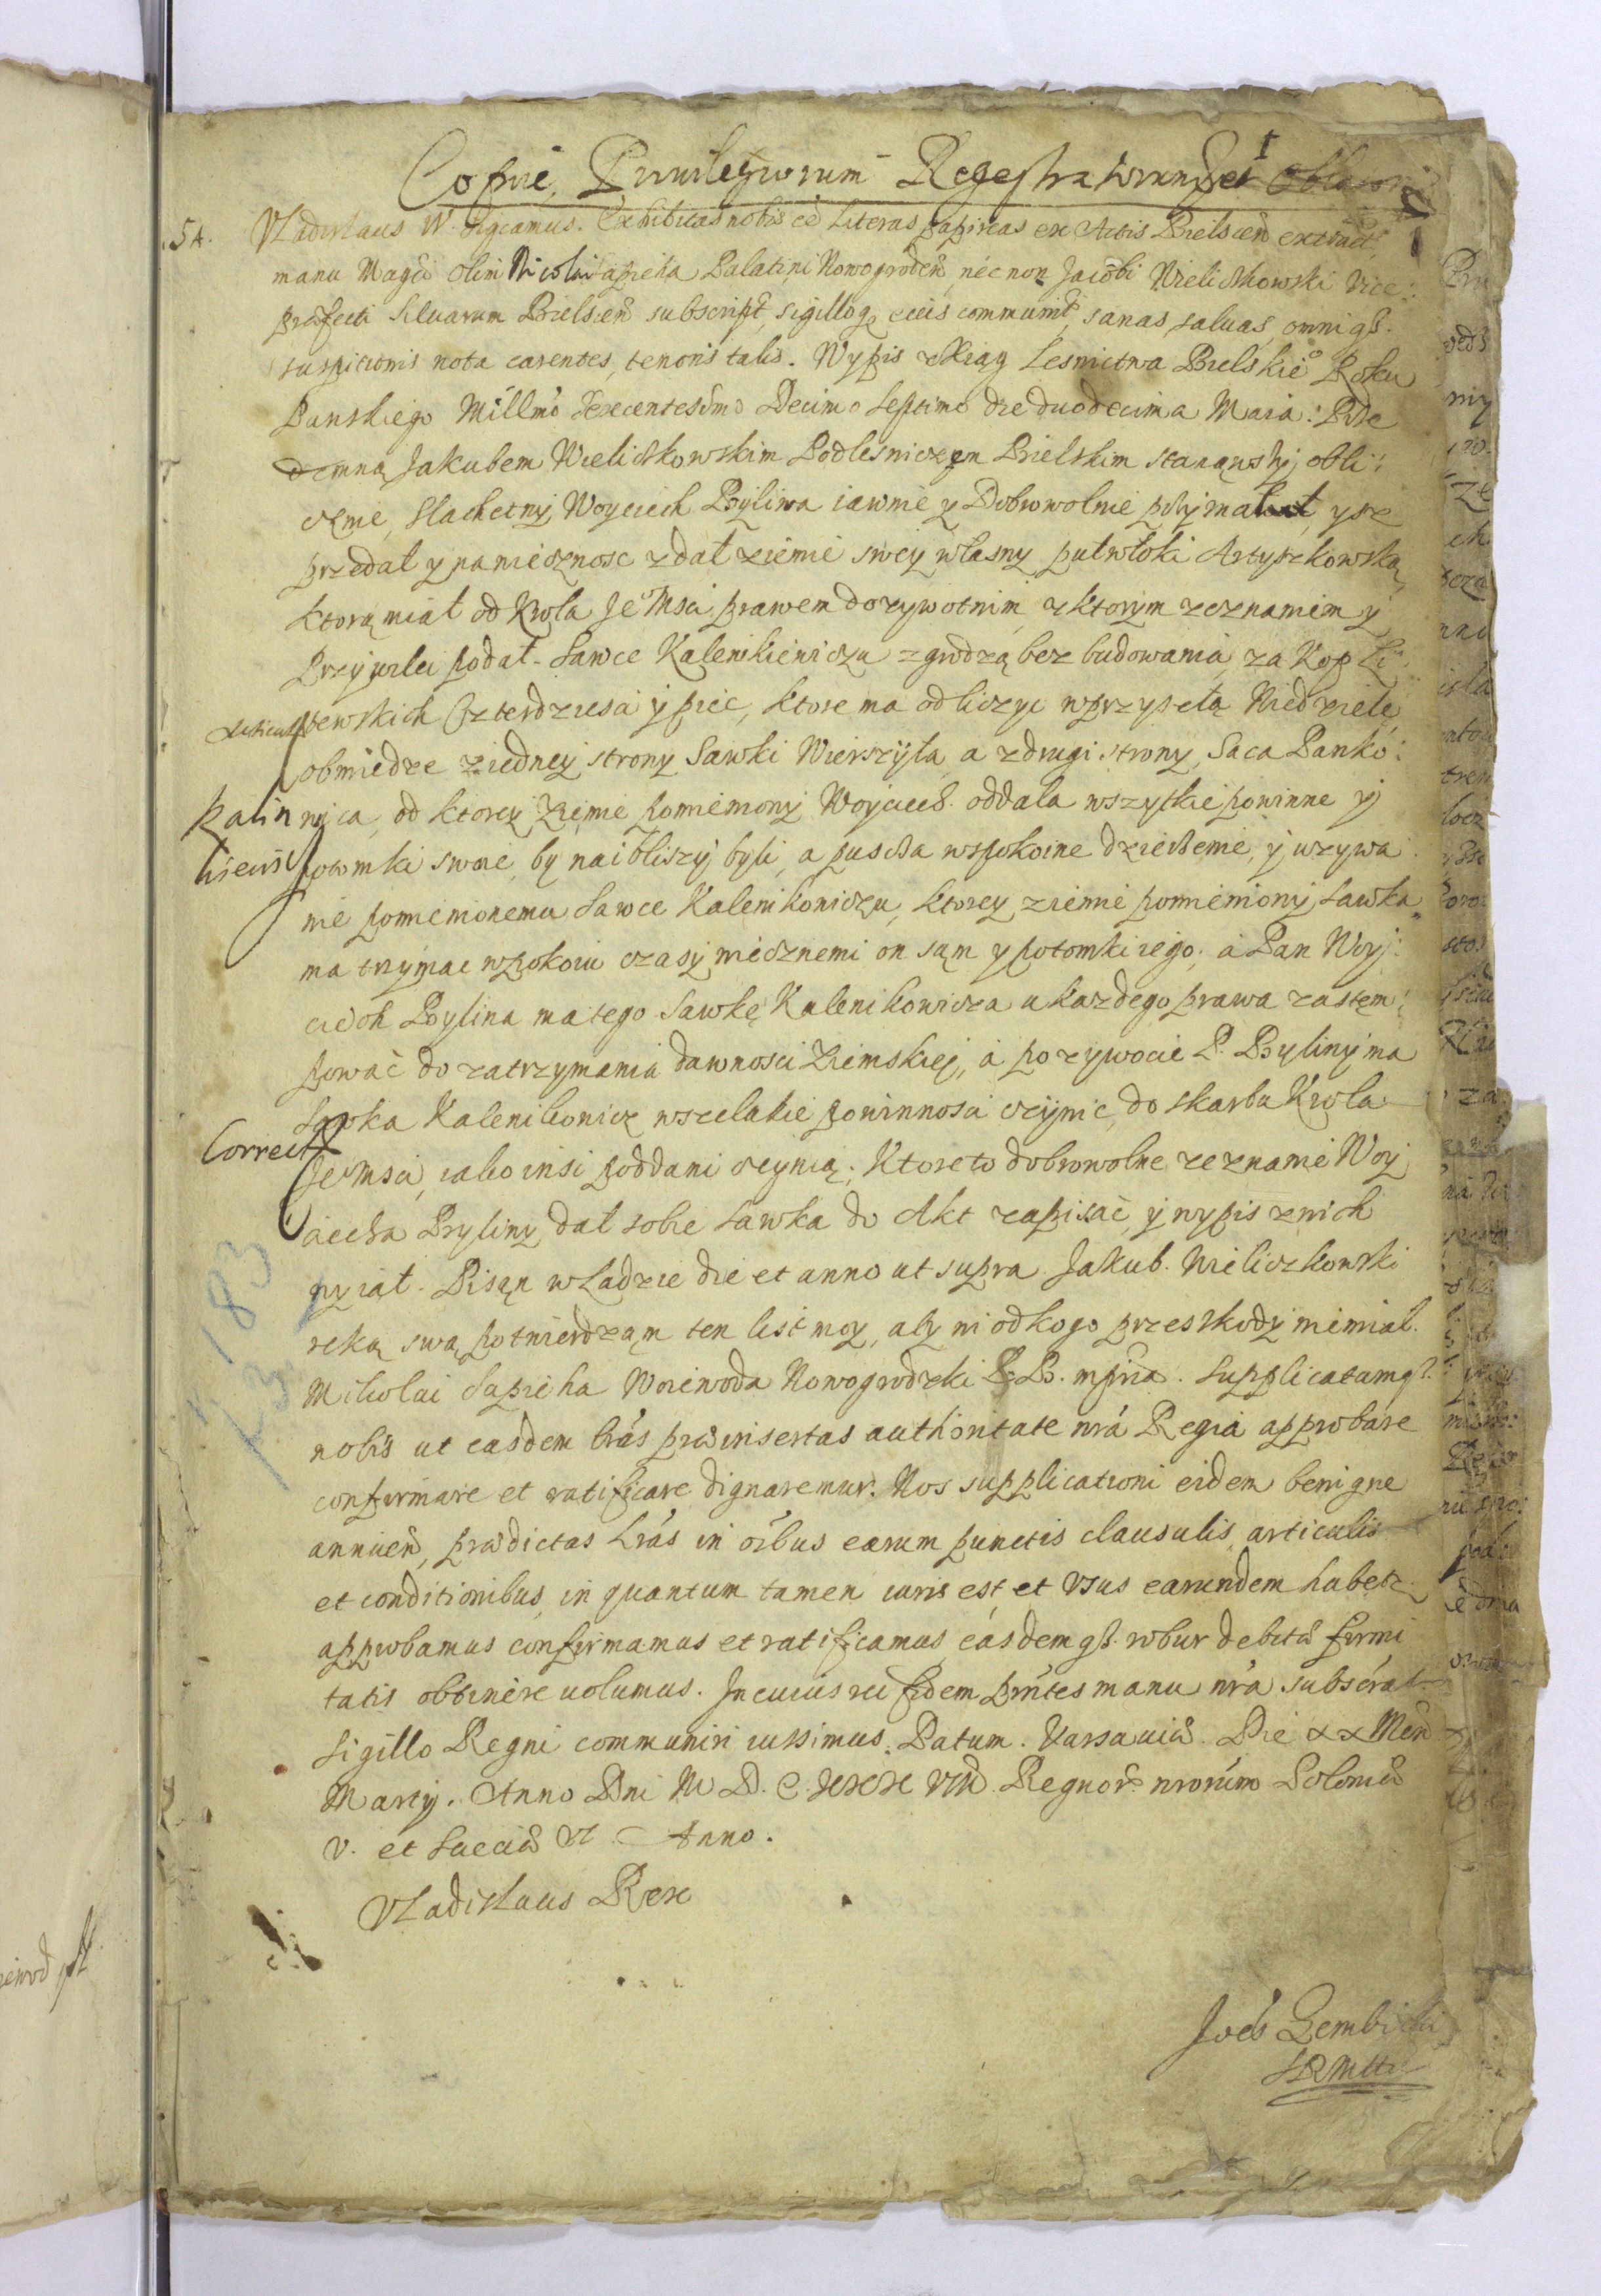 Copiæ Priuilegiorum Regestratorum et Oblatorum
54. Vladislaus IV. Significamus. Exhibitas nobis eê Literas papireas ex Actis Bielscen̄ extract
manu Magci olim Nicolai Sapieha Palatini Nowogroden̄, nec non Jacobi Wieliczkowski Vice:
præfecti siluarum Bielscen̄ subscript, sigilloq̨ eius communit, sanas, saluas, omniq̨.
suspicionis nota carentes, tenoris talis. Wypis z Xiąg Lesnictwa Bielskieo Roku
Panskiego Millmo Sexcentesimo Decimo septimo die duodecima Maia: Prze
demną Jakubem Wieliczkowskim Podlesniczym Bielskim stanąwszy obli:
cznie, Slachetny Woyciech Bylina iawnie y Dobrowolnie pzyznał, ysz
przedał y na wiecznosc zdał ziemie swey własny pułwłoki Artyszkowską,
ktorą miał od Krola Je Msci prawem dozywotnim, z ktorym zeznaniem y
Przywilei podał. Sawce Kalenikiewiczu z grodzą bez budowania, za Kop Li
tewskich Czterdziesci y piec, ktore ma odliczyc w przyszłą Niedziele,
obmiedze z iedney strony Sawki Wierszyła, a z drugi strony Saca Panko:
Kalin wica, od ktorey ziemie pomieniony Woyciech. oddala wszytkie powinne y
potomki swoie, by naibliszy byli, a puscza w spokoine dzierżenie, y uzywa
nie pomienionemu Sawce Kalenikowiczu, ktorey ziemie pomieniony Sawka
ma trzymac w pokoiu czasy wiecznemi on sam y potomki iego, a Pan Woy:
ciech Bylina ma tego Sawkę Kalenikowicza u kazdego prawa zastem:
pować do zatrzymania dawnosci Ziemskiej, a po zywocie P. Byliny ma
Sawka Kalenikowicz wszelakie powinnosci czynic do skarbu Krola
Correct
Je Msci, iako insi poddani czynią. Ktore to dobrowolne zeznanie Woy
ciecha Byliny dał sobie Sawka do Akt zapisać, y wypis z nich
wyiął. Pisan w Ladzie die et anno ut supra. Jakub. Wieliczkowski
ręką swą potwierdzam ten list moy, aby ni od kogo przeszkody niemiał.
Mikolai Sapieha Woiewoda Nowogrodzki L. B. mpria. Supplicatumq̨.
nobis ut easdem lrás præinsertas authoritate nrá Regia approbare
confirmare et ratificare dignaremur. Nos supplicationi eidem benigne
annuen̄, prædictas Lrás in oĩbus earum punctis clausulis, articulis
et conditionibus, in quantum tamen iuris est, et Vsus earundem habetr.
approbamus confirmamus et ratificamus, easdemq̨. robur debitæ firmi
tatis obtinere uolumus. In cuius rei fidem prńtes manu nrá subscrat
sigillo Regni communiri iussimus. Datum. Varsauiæ. Die XX Men̄
Martij. Anno Dni M D. C. XXX VIII. Regnor̃ nrorum Poloniæ
V. et Sueciæ VI Anno.
Vladislaus Rex
Joẽs Gembicki